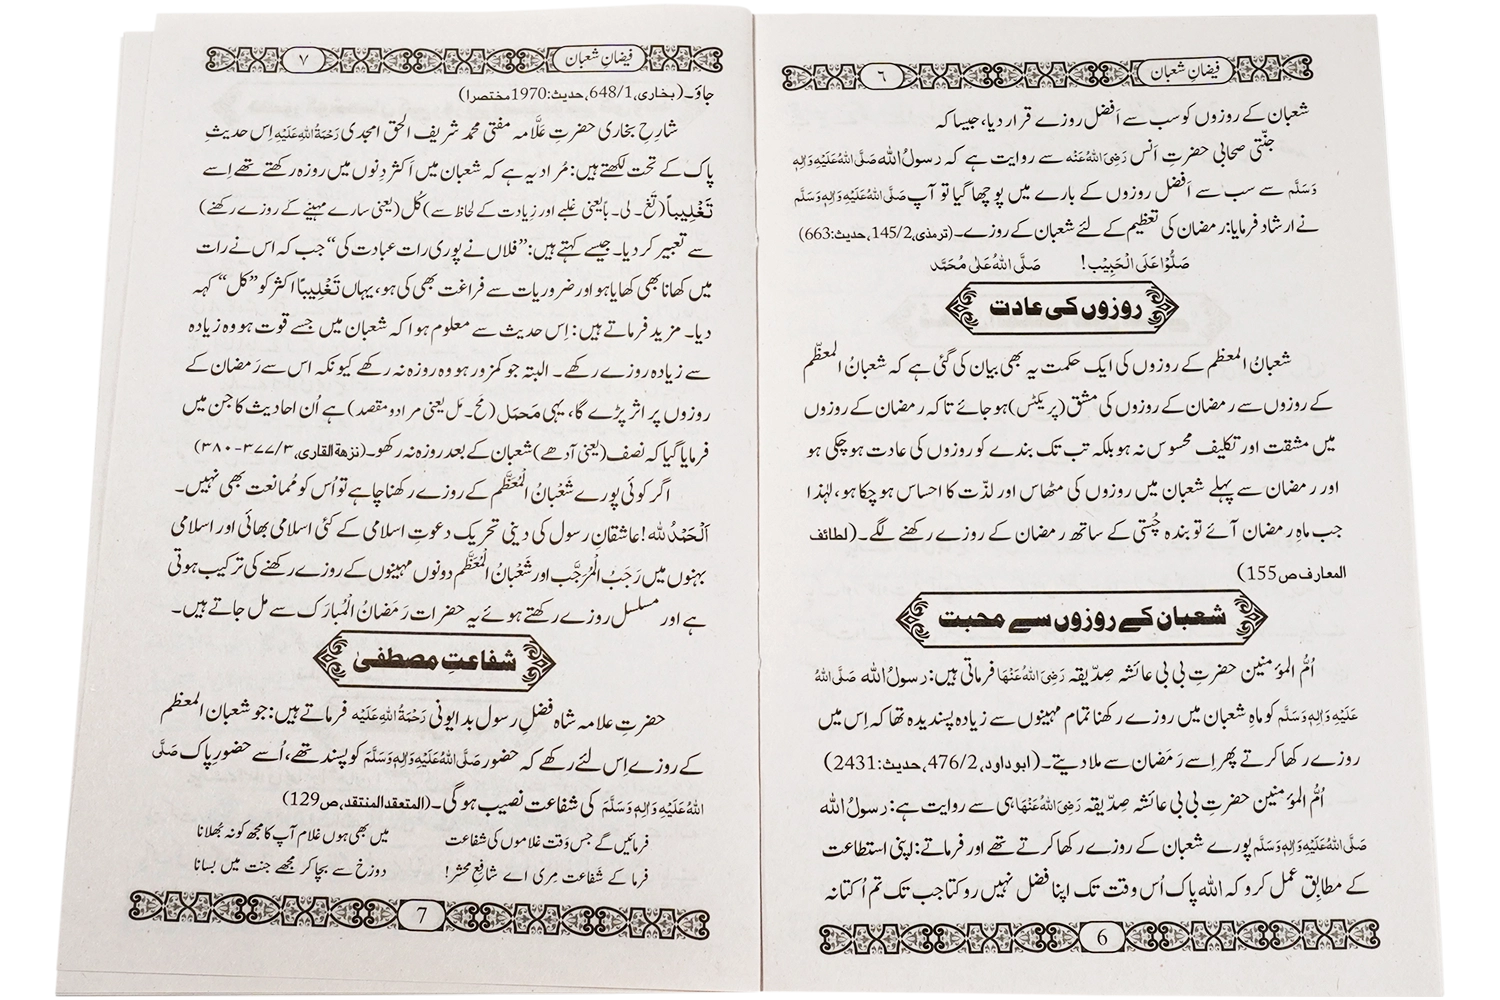 فیضانِ شعبان
٦
شعبان کے روزوں کو سب سے اَفضل روزے قرار دیا، جیسا کہ
جنّتی صحابی حضرتِ اَنس رَضِیَ اللہُ عَنْہ سے روایت ہے کہ رسولُ اللہ صَلَّی اللہُ عَلَیْہِ وَاٰلِہٖ
وَسَلَّم سے سب سے اَفضل روزوں کے بارے میں پوچھا گیا تو آپ صَلَّی اللہُ عَلَیْہِ وَاٰلِہٖ وَسَلَّم
نے ارشاد فرمایا: رمضان کی تعظیم کے لئے شعبان کے روزے۔ (ترمذی، 145/2، حدیث:663)
صَلُّوْا عَلَی الْحَبِیْب! صَلَّی اللہُ عَلٰی مُحَمَّد
روزوں کی عادت
شعبانُ المعظم کے روزوں کی ایک حکمت یہ بھی بیان کی گئی ہے کہ شعبانُ المعظّم
کے روزوں سے رمضان کے روزوں کی مشق (پریکٹس) ہو جائے تاکہ رمضان کے روزوں
میں مشقت اور تکلیف محسوس نہ ہو بلکہ تب تک بندے کو روزوں کی عادت ہو چکی ہو
اور رمضان سے پہلے شعبان میں روزوں کی مٹھاس اور لذّت کا احساس ہو چکا ہو، لہٰذا
جب ماہِ رمضان آئے تو بندہ چُستی کے ساتھ رمضان کے روزے رکھنے لگے۔ (لطائف
المعارف ص 155)
شعبان کے روزوں سے محبت
اُمُّ المؤمنین حضرتِ بی بی عائشہ صِدّیقہ رَضِیَ اللہُ عَنْہَا فرماتی ہیں: رسولُ اللہ صَلَّی اللہُ
عَلَیْہِ وَاٰلِہٖ وَسَلَّم کو ماہِ شعبان میں روزے رکھنا تمام مہینوں سے زیادہ پسندیدہ تھا کہ اِس میں
روزے رکھا کرتے پھر اِسے رَمَضان سے ملا دیتے۔ (ابوداود، 476/2، حدیث:2431)
اُمُّ المؤمنین حضرتِ بی بی عائشہ صِدّیقہ رَضِیَ اللہُ عَنْہَا ہی سے روایت ہے: رسولُ اللہ
صَلَّی اللہُ عَلَیْہِ وَاٰلِہٖ وَسَلَّم پورے شعبان کے روزے رکھا کرتے تھے اور فرماتے: اپنی استطاعت
کے مطابق عمل کرو کہ اللہ پاک اُس وقت تک اپنا فضل نہیں روکتا جب تک تم اُکتا نہ
6
فیضانِ شعبان
٧
جاؤ۔ (بخاری، 648/1، حدیث:1970مختصرا)
شارِحِ بخاری حضرتِ عَلَّامہ مفتی محمد شریف الحق امجدی رَحْمَۃُ اللہِ عَلَیْہ اِس حدیثِ
پاک کے تحت لکھتے ہیں: مُراد یہ ہے کہ شعبان میں اَکثر دِنوں میں روزہ رکھتے تھے اِسے
تَغْلِیباً (تَغ۔لی۔باً یعنی غلبے اور زِیادت کے لحاظ سے) کُل (یعنی سارے مہینے کے روزے رکھنے)
سے تعبیر کر دیا۔ جیسے کہتے ہیں: ”فلاں نے پوری رات عبادت کی“ جب کہ اس نے رات
میں کھانا بھی کھایا ہو اور ضروریات سے فراغت بھی کی ہو، یہاں تَغْلِیباً اکثر کو ”کل“ کہہ
دیا۔ مزید فرماتے ہیں: اِس حدیث سے معلوم ہوا کہ شعبان میں جسے قوت ہو وہ زیادہ
سے زیادہ روزے رکھے۔ البتہ جو کمزور ہو وہ روزہ نہ رکھے کیونکہ اس سے رَمَضان کے
روزوں پر اثر پڑے گا، یہی مَحمَل (مَح۔مَل یعنی مراد و مقصد) ہے اُن احادیث کا جن میں
فرمایا گیا کہ نصف (یعنی آدھے) شعبان کے بعد روزہ نہ رکھو۔ (نزھۃ القاری، ۳/ ۳۷۷-۳۸۰)
اگر کوئی پورے شَعْبانُ الْمُعَظَّم کے روزے رکھنا چاہے تو اُس کو مُمانعت بھی نہیں۔
اَلْحَمْدُ لِلّٰہ! عاشقانِ رسول کی دینی تحریک دعوتِ اسلامی کے کئی اسلامی بھائی اور اسلامی
بہنوں میں رَجَبُ الْمُرَجَّب اور شَعْبانُ الْمُعَظَّم دونوں مہینوں کے روزے رکھنے کی ترکیب ہوتی
ہے اور مسلسل روزے رکھتے ہوئے یہ حضرات رَمَضانُ الْمُبارَک سے مل جاتے ہیں۔
شفاعتِ مصطفیٰ
حضرتِ علامہ شاہ فضلِ رسول بدایونی رَحْمَۃُ اللہِ عَلَیْہ فرماتے ہیں: جو شعبان المعظم
کے روزے اِس لئے رکھے کہ حضور صَلَّی اللہُ عَلَیْہِ وَاٰلِہٖ وَسَلَّم کو پسند تھے، اُسے حضورِ پاک صَلَّی
اللہُ عَلَیْہِ وَاٰلِہٖ وَسَلَّم کی شفاعت نصیب ہو گی۔ (المعتقد المنتقد، ص129)
فرمائیں گے جس وَقت غلاموں کی شفاعت میں بھی ہوں غلام آپ کا مجھ کو نہ بُھلانا
فرما کے شَفاعت مِری اے شافِعِ محشر! دوزخ سے بچا کر مجھے جنت میں بسانا
7